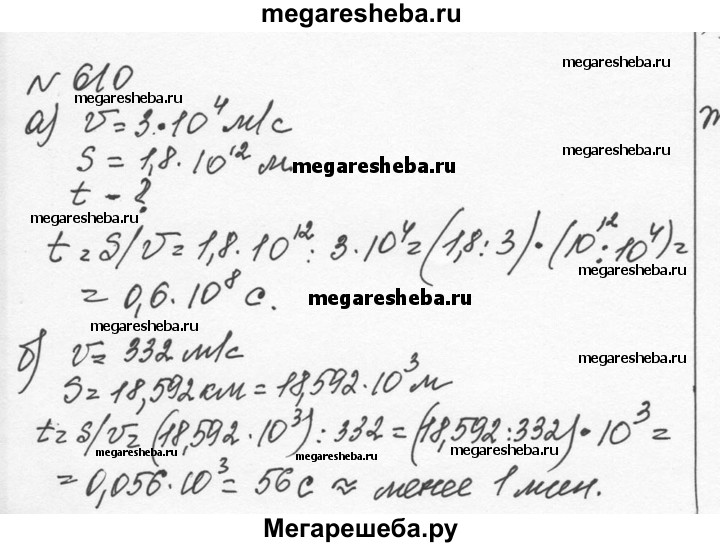 megaresheba.ru
№ 610
megaresheba.ru
megaresheba.ru
а) v = 3·10⁴ м/с
S = 1,8·10¹² м.
megaresheba.ru
megaresheba.ru
t - ?
megaresheba.ru
t = S/v = 1,8·10¹² : 3·10⁴ = (1,8 : 3)·(10¹² : 10⁴) =
megaresheba.ru
= 0,6·10⁸ с.
megaresheba.ru
megaresheba.ru
б) v = 332 м/с
megaresheba.ru
S = 18,592 км = 18,592·10³ м
t = S/v = (18,592·10³) : 332 = (18,592 : 332)·10³ =
megaresheba.ru
megaresheba.ru
= 0,056·10³ = 56 с ≈ менее 1 мин.
Мегарешеба.ру